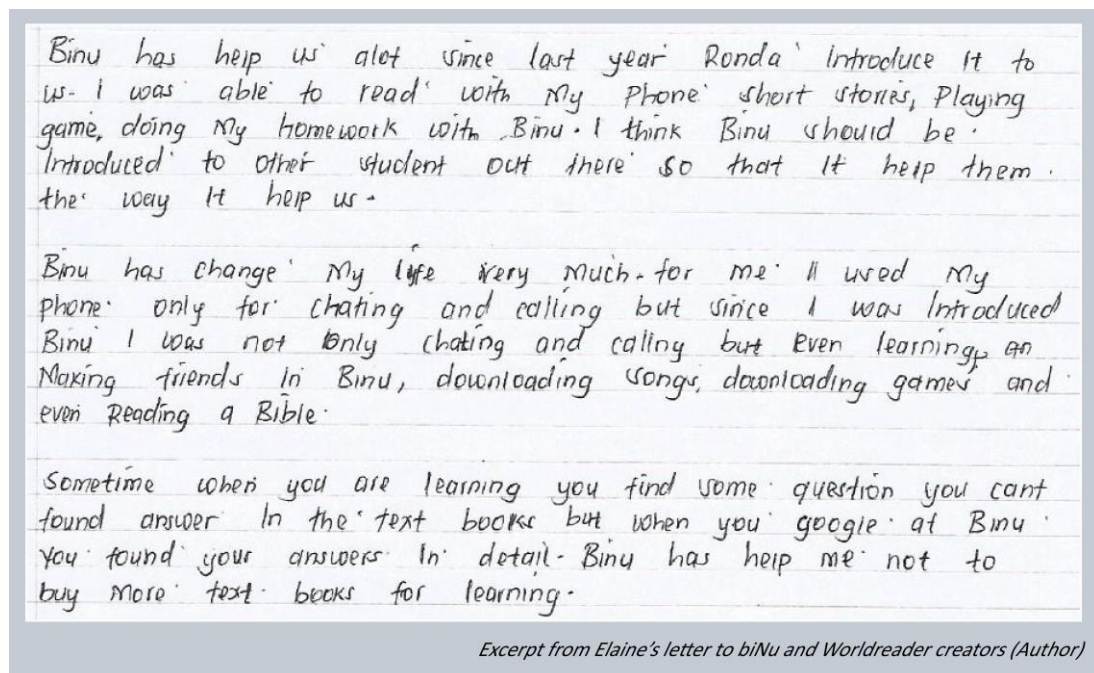 Binu has help us alot since last year Ronda Introduce It to
us. I was able to read with My Phone short stories, Playing
game, doing My homework with Binu. I think Binu should be
Introduced to other student out there so that It help them
the way It help us.
Binu has change My life very Much. for me I used My
phone only for chating and calling but since I was Introduced
Binu I was not Only chating and caliny but Even learning, an
Making friends In Binu, downloading songs, downloading games and
even Reading a Bible.
Sometime when you are learning you find some question you cant
found answer In the text books but when you google at Binu
You found your answers In detail. Binu has help me not to
buy More text books for learning.
Excerpt from Elaine's letter to biNu and Worldreader creators (Author)